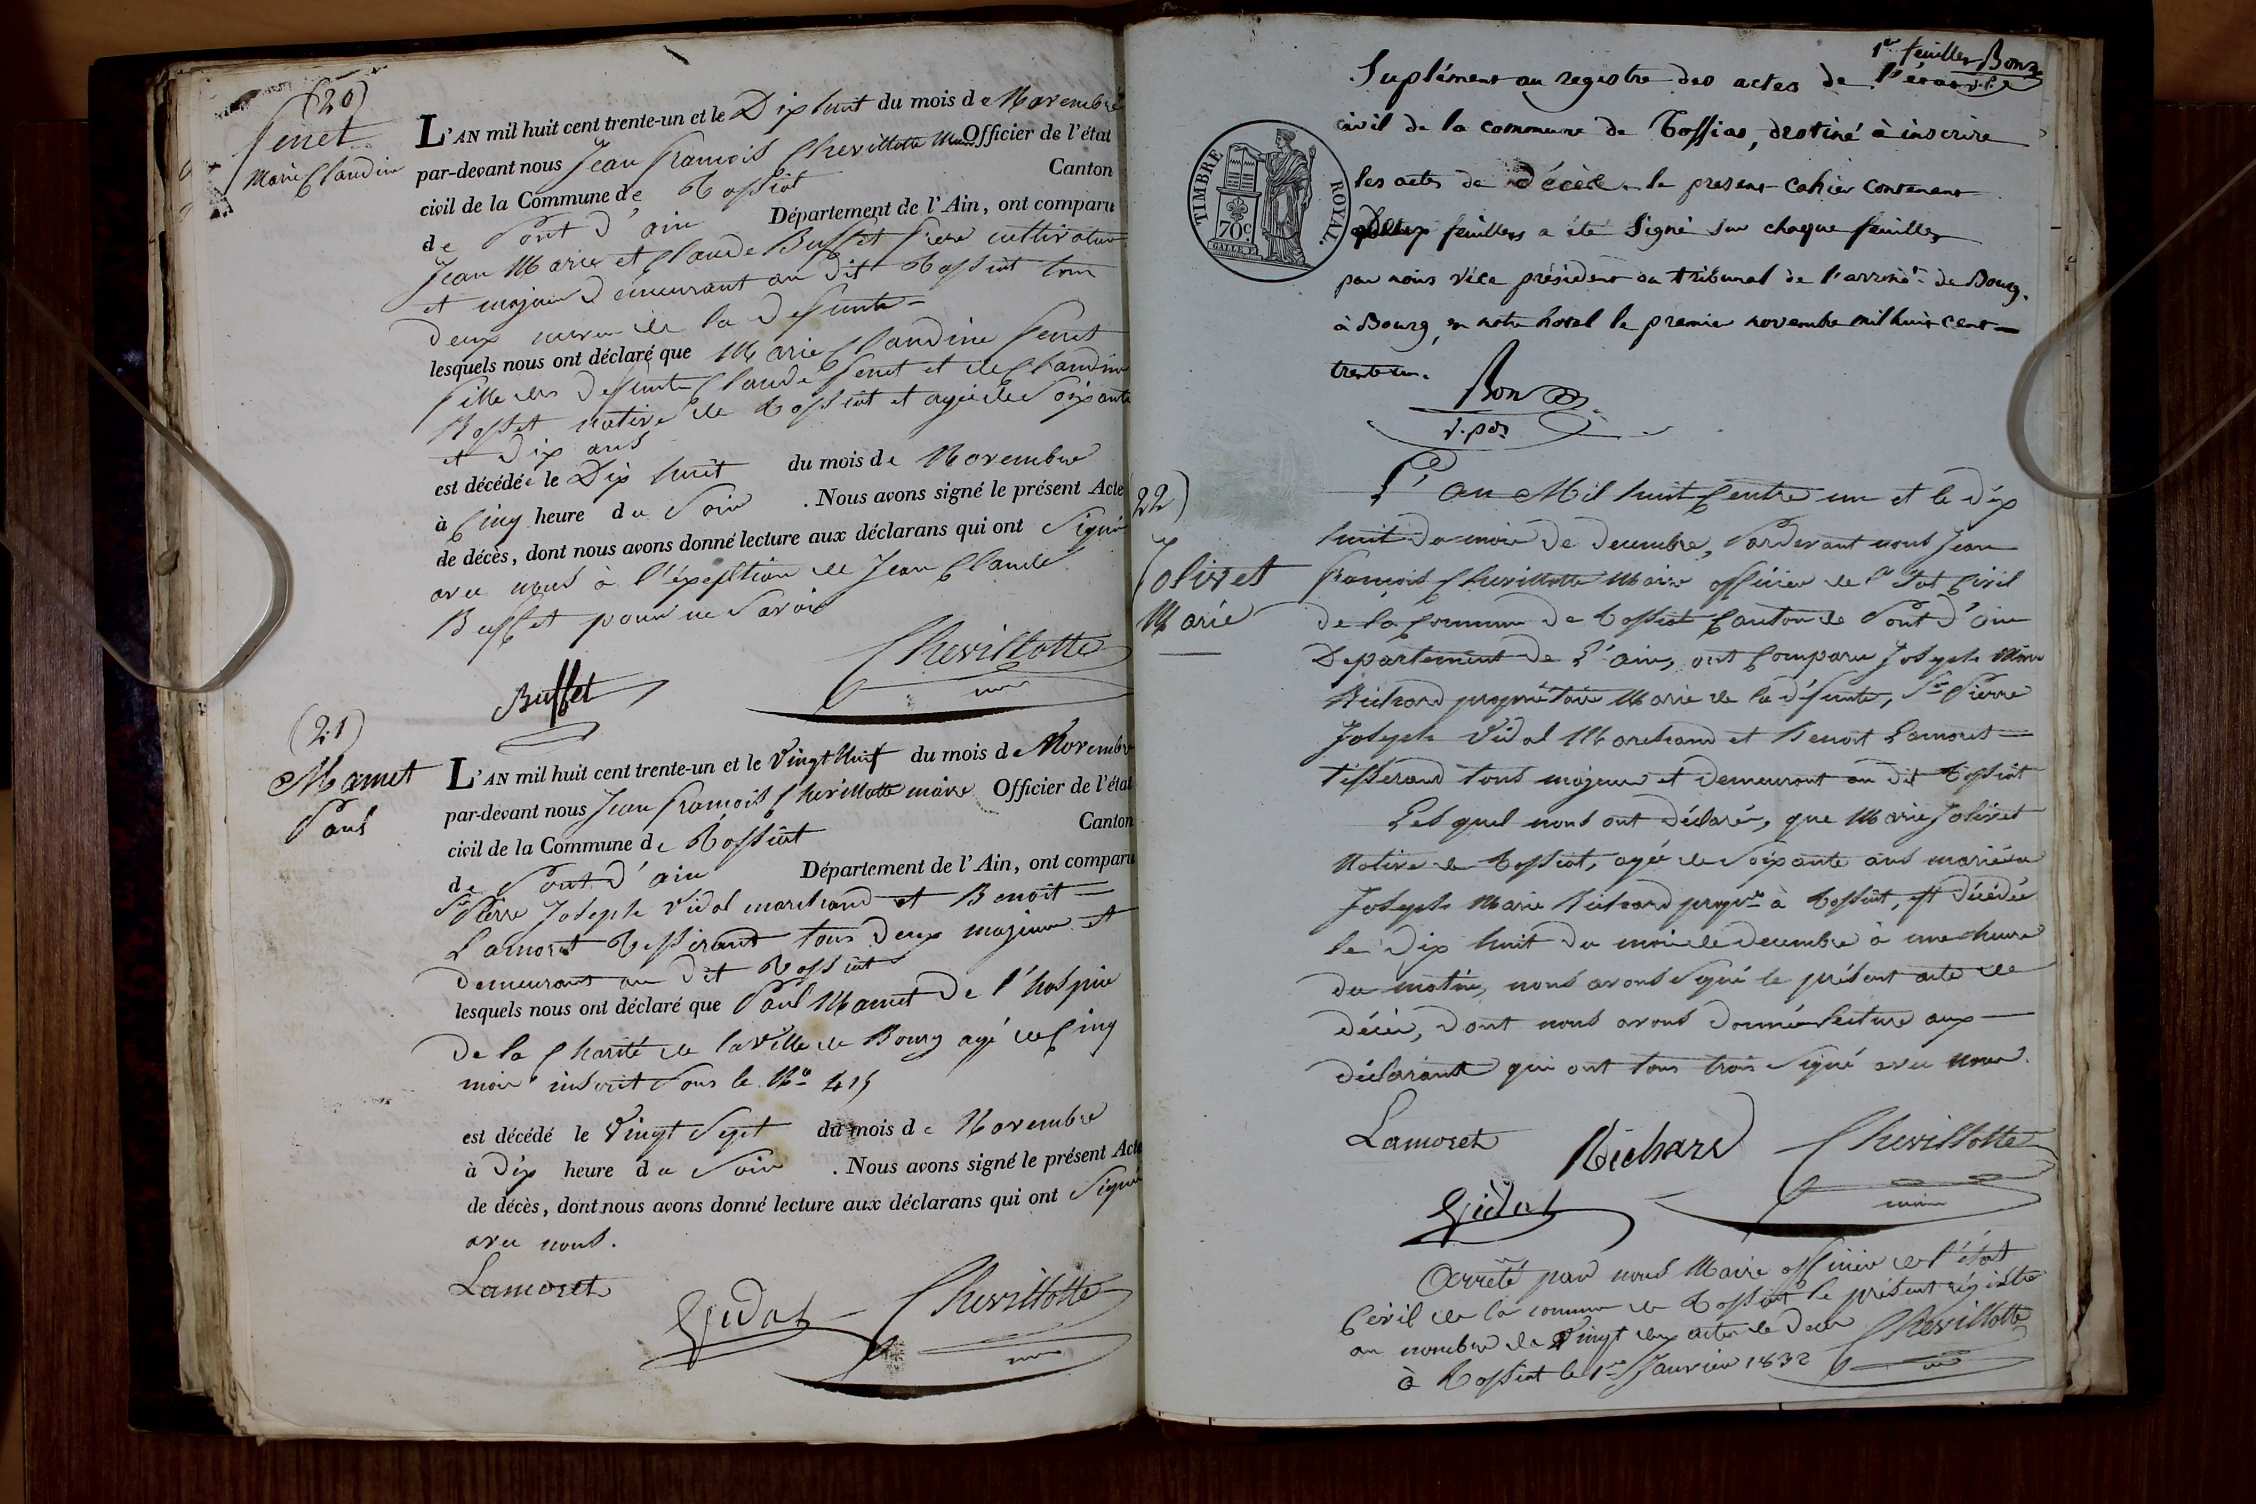 (20)
Senet
Marie Claudine
L'AN mil huit cent trente-un et le Dix huit du mois de Novembre
par-devant nous Jean François Chevillotte Maire Officier de l'état
civil de la Commune de Tossiat Canton
de Pont d'ain Département de l'Ain, ont comparu
Jean Marie et Claude Buffet frere cultivateur
et majeur demeurant au dit Tossiat tous
deux neveu de la defunte
lesquels nous ont déclaré que Marie Claudine Senet
fille des defunts Claude Senet et de Claudine
Rosset native de Tossiat et agée de Soixante
et dix ans
est décédée le Dix huit du mois de Novembre
à Cinq heure du Soir . Nous avons signé le présent Acte
de décès, dont nous avons donné lecture aux déclarans qui ont Signé
avec nous à l'éxeption de Jean Claude
Buffet pour ne Savoir
Buffet
Chevillotte
maire
(21)
Mamet
Paul
L'AN mil huit cent trente-un et le Vingt Huit du mois de Novembre
par-devant nous Jean François Chevillotte maire Officier de l'état
civil de la Commune de Tossiat Canton
de Pont d'ain Département de l'Ain, ont comparu
Sr Pierre Joseph Vidal marchand et Benoit
Lamoret Tisserant tous deux majeur et
demeurant au dit Tossiat
lesquels nous ont déclaré que Paul Mamet De l'hospice
De la Charité de la ville de Bourg agé de Cinq
mois inscrit Sous le No 415
est décédé le Vingt Sept du mois de Novembre
à Dix heure du Soir . Nous avons signé le présent Acte
de décès, dont nous avons donné lecture aux déclarans qui ont Signé
avec nous.
Lamoret
Vidal
Chevillotte
maire
1er feuillet Bon
Suplément au registre des actes de l'état
civil de la commune de Tossiat, destiné à inscrire
les actes de décès. le present cahier contenant
deux feuillets a été Signé sur chaque feuillet
par nous vice président du tribunal de l'arrondt de Bourg.
à Bourg, en notre hotel le premier novembre mil huit cent
trente un.
Bon
v. pdt
TIMBRE ROYAL.
70c
(22)
Jolivet
Marie
L'an Mil huit Centre un et le dix
huit du mois de decembre, Pardevant nous Jean
François Chevillotte Maire officier de l'Etat Civil
de la Commune de Tossiat Canton de Pont d'ain
Departement de L'ain, ont Comparu Joseph Marie
Richard propriétaire Marie de la défunte, Sr Pierre
Joseph Vidal Marchand et Benoit Lamoret
tisserand tous majeur et demeurant au dit Tossiat
Les quel nous ont déclaré, que Marie Jolivet
Native de Tossiat, agée de Soixante ans mariée a
Joseph Marie Richard propre à Tossiat, est décédée
le dix huit du mois de decembre à une heure
du matin, nous avons Signé le présent acte de
décès, dont nous avons donné lecture aux
déclarant qui ont tous trois Signé avec nous.
Lamoret
Richard
Chevillotte
maire
Vidal
Arrêté par nous Maire officier de l'état
Civil de la commune de Tossiat le présent régistre
au nombre de Vingt deux actes de deces
à Tossiat le 1er Janvier 1832
Chevillotte